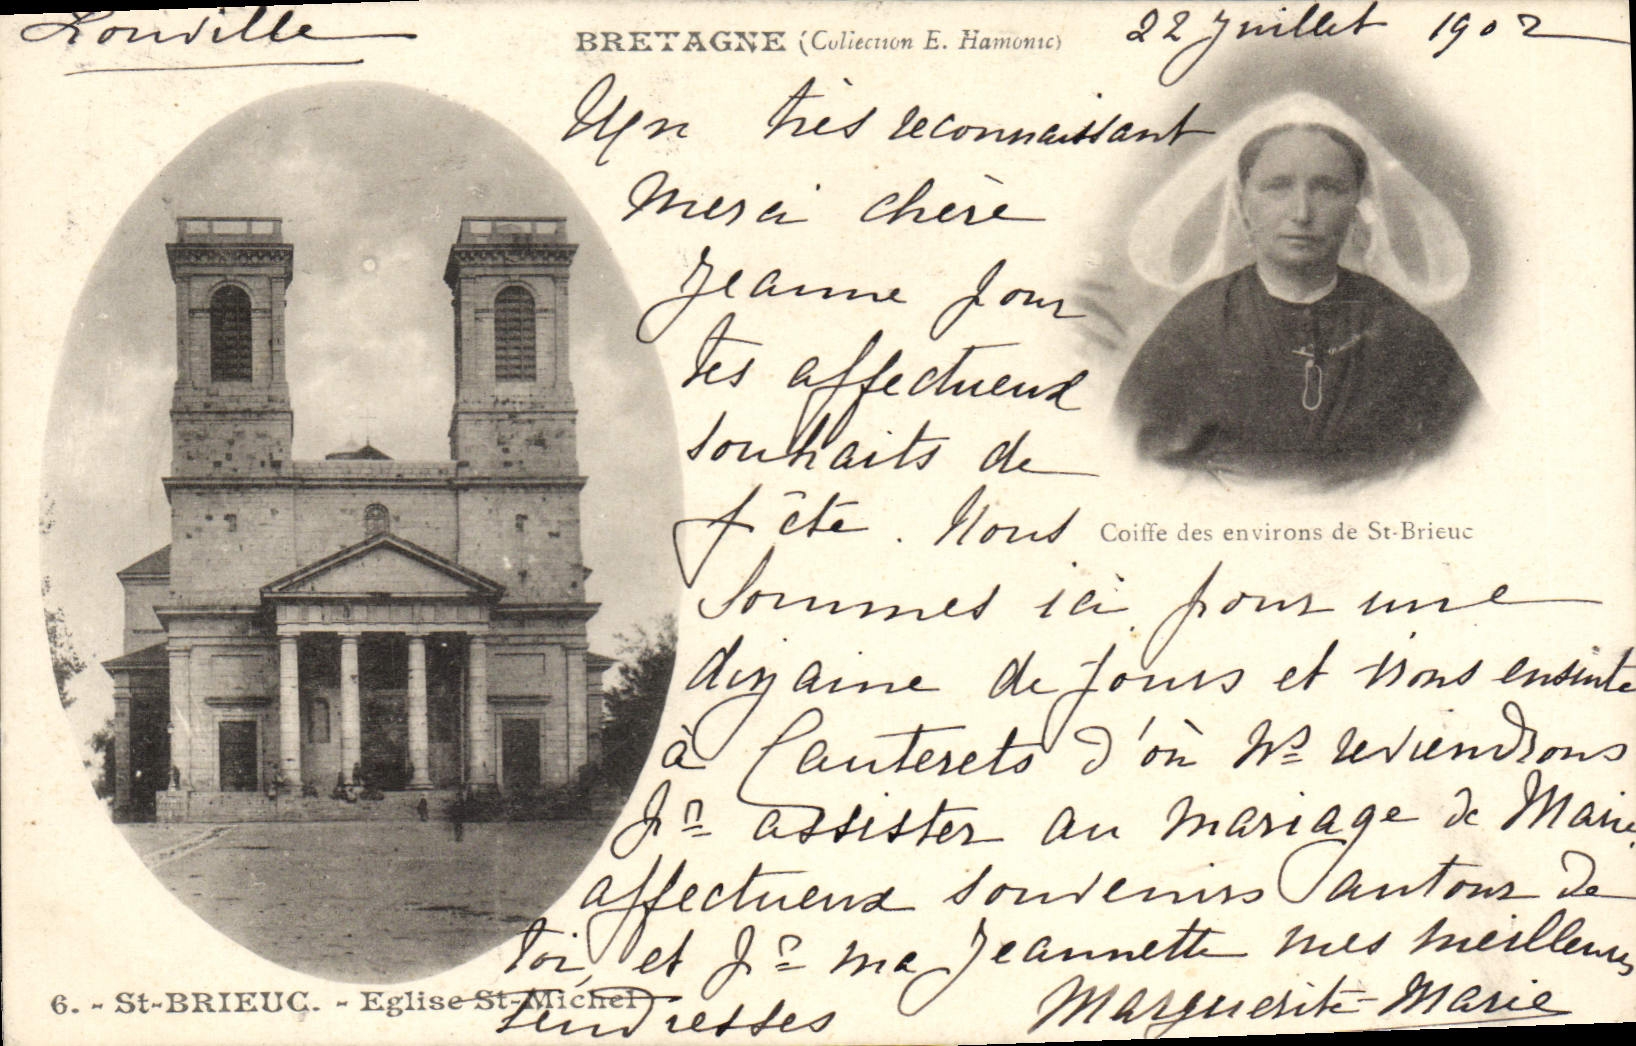 Louville
BRETAGNE (Collection E. Hamonic)
22 Juillet 1902
Un très reconnaissant
merci chère
Jeanne pour
tes affectueux
souhaits de
fête. Nous
Coiffe des environs de St-Brieuc
sommes ici pour une
dizaine de jours et irons ensuite
à Cauterets d'où ns reviendrons
pr assister au mariage de Marie
affectueux souvenirs autour de
toi, et pr ma Jeannette mes meilleures
6. - St-BRIEUC. - Eglise St-Michel
tendresses Marguerite-Marie